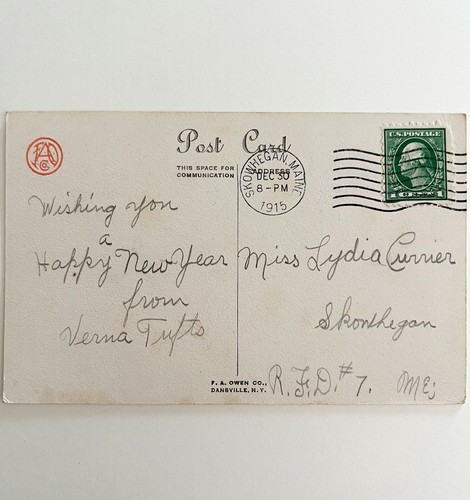 Post Card
THIS SPACE FOR
COMMUNICATION
ADDRESS
SKOWHEGAN, MAINE
DEC 30
8-PM
1915
U.S. POSTAGE
1 1
Wishing you
a
Happy New Year
from
Verna Tufts
Miss Lydia Currier
Skowhegan
R.F.D. #7. Me;
F. A. OWEN CO.,
DANSVILLE, N.Y.